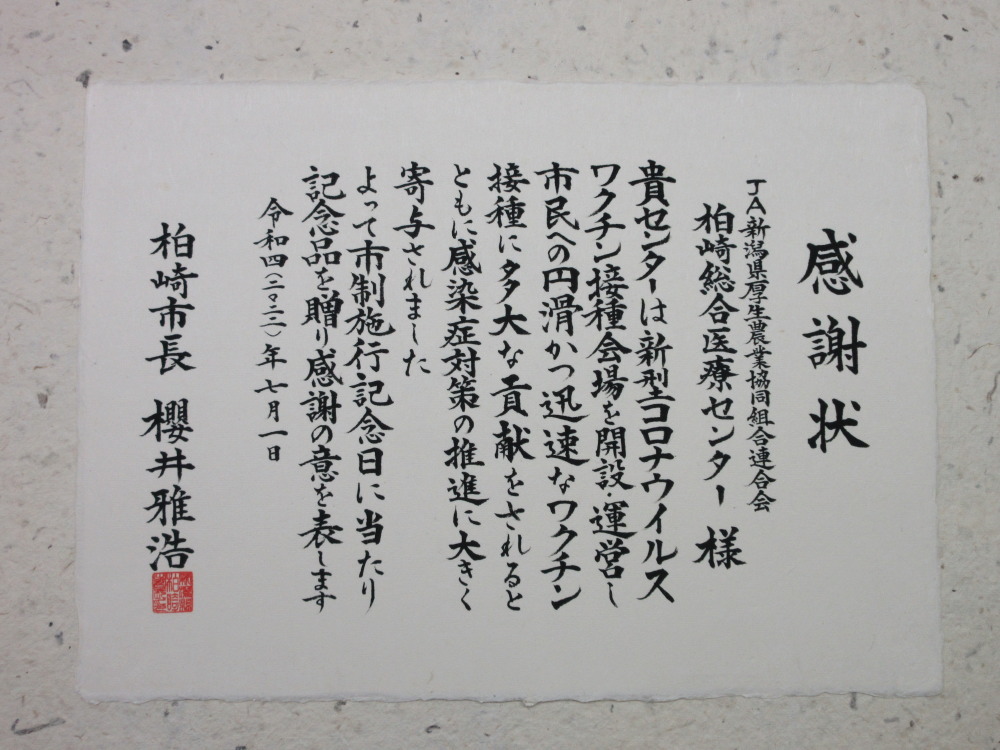 感謝状
JA新潟県厚生農業協同組合連合会
柏崎総合医療センター 様
貴センターは新型コロナウイルス
ワクチン接種会場を開設・運営し
市民への円滑かつ迅速なワクチン
接種に多大な貢献をされると
ともに感染症対策の推進に大きく
寄与されました
よって市制施行記念日に当たり
記念品を贈り感謝の意を表します
令和四(二〇二二)年七月一日
柏崎市長 櫻井雅浩